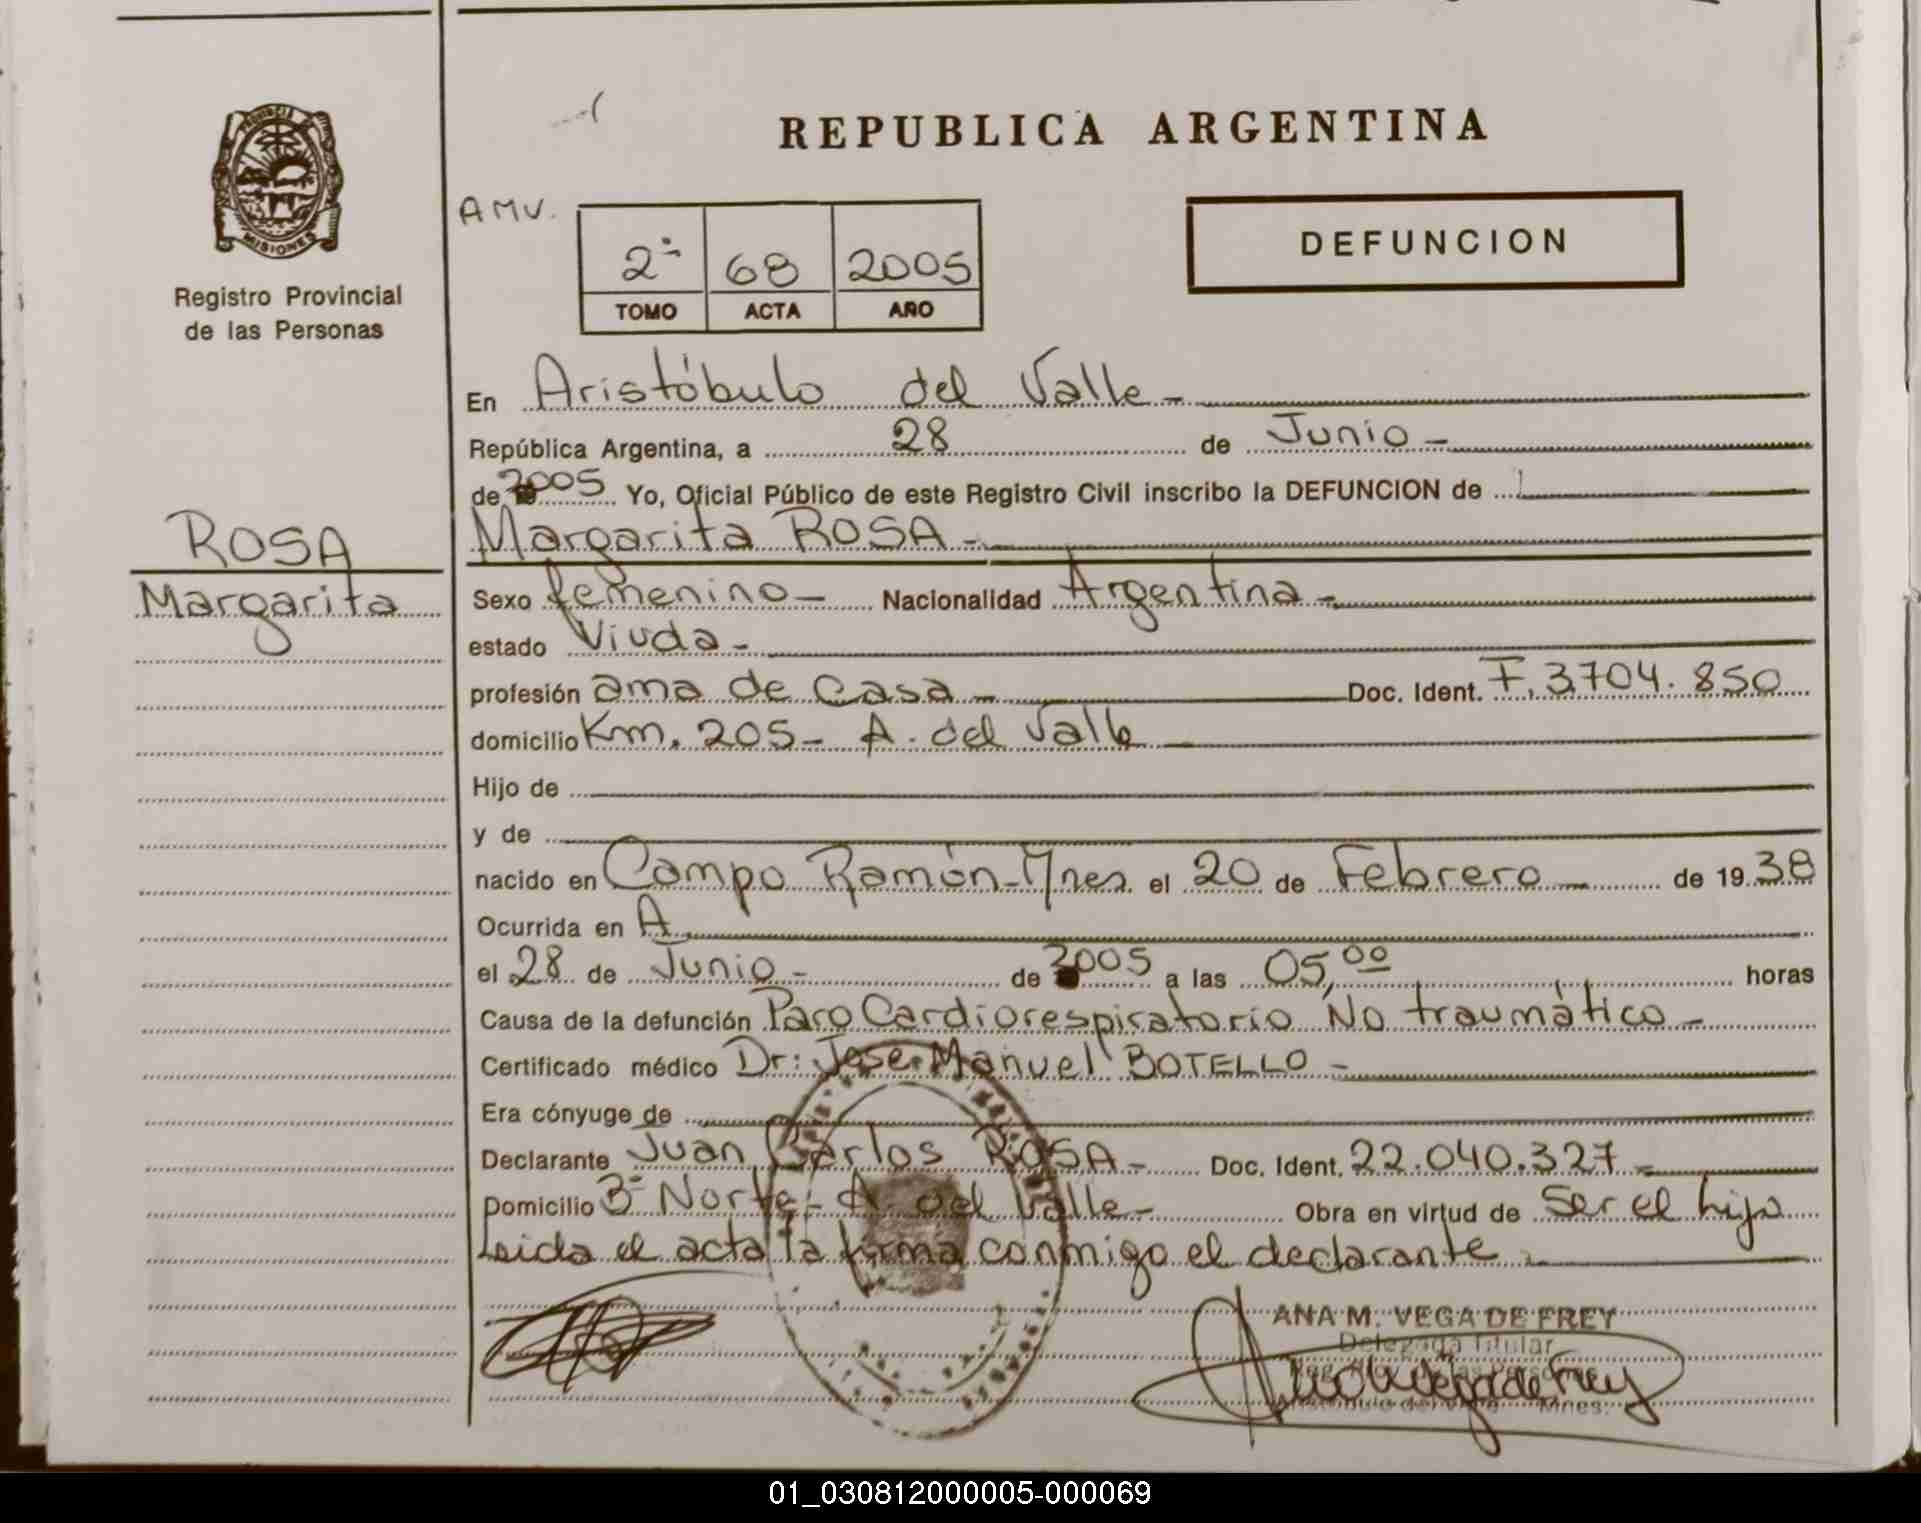 REPUBLICA ARGENTINA
PROVINCIA DE
MISIONES
Registro Provincial
de las Personas
AMV.
2ª 68 2005
TOMO ACTA AÑO
DEFUNCION
En Aristóbulo del Valle -
República Argentina, a 28 de Junio -
de 2005 Yo, Oficial Público de este Registro Civil inscribo la DEFUNCION de
ROSA
Margarita ROSA -
Margarita
Sexo femenino - Nacionalidad Argentina -
estado Viuda -
profesión ama de casa - Doc. Ident. F. 3704.850
domicilio Km. 205 - A. del Valle
Hijo de
y de
nacido en Campo Ramón - Mnes. el 20 de Febrero - de 1938
Ocurrida en A
el 28 de Junio - de 2005 a las 05,00 horas
Causa de la defunción Paro Cardiorespiratorio No traumático -
Certificado médico Dr: Jose Manuel BOTELLO -
Era cónyuge de
Declarante Juan Carlos ROSA - Doc. Ident. 22.040.327 -
Domicilio 3ª Norte - A. del Valle - Obra en virtud de Ser el hijo
Leida el acta la firma conmigo el declarante.
ANA M. VEGA DE FREY
Delegada Titular
Mnes.
01_030812000005-000069